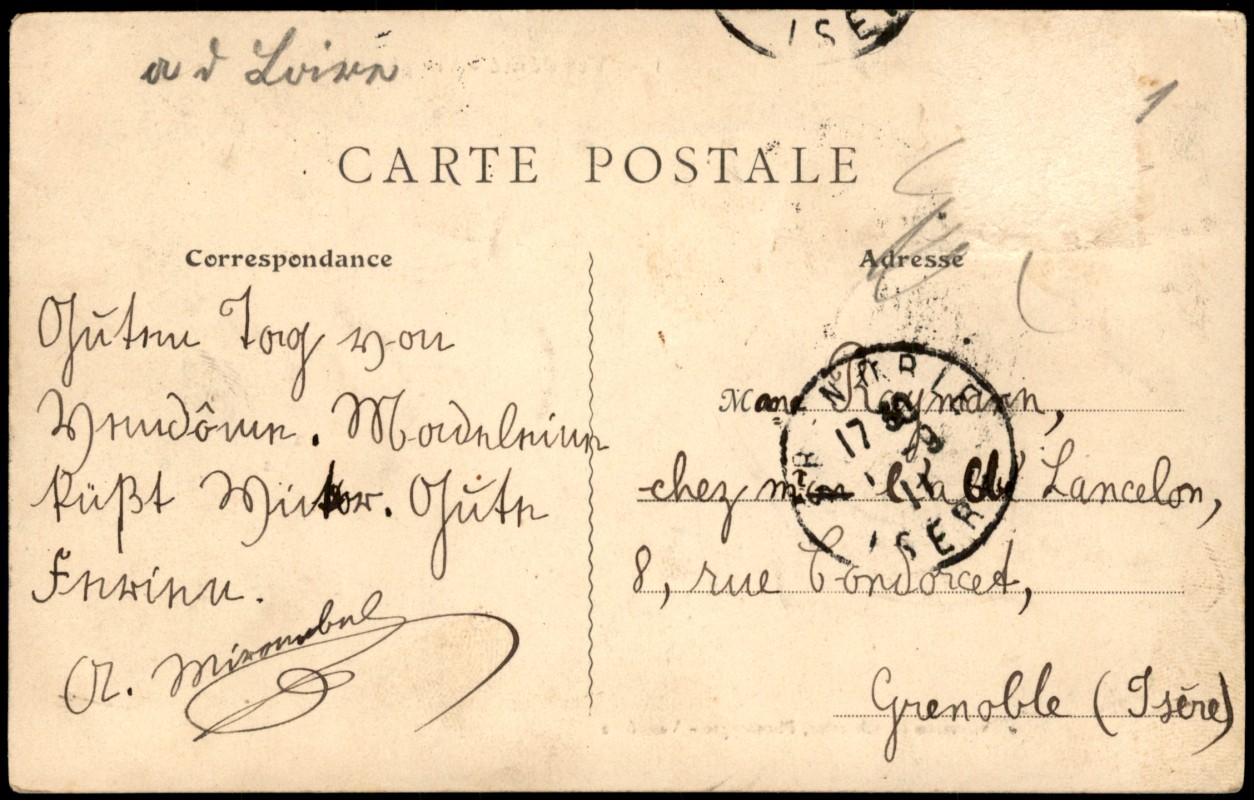 a d Loire
ISE
1
CARTE POSTALE
Correspondance
Adresse
Guten Tag von
Vendôme. Madeleine
küßt Wiktor. Gute
Ferien.
A. Mirambel
Mme Raymann,
chez Lancelon,
8, rue Condorcet,
Grenoble (Isère)
17
ISERE